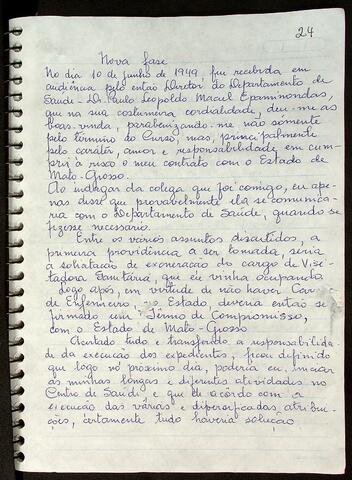 24
Nova fase
No dia 10 de junho de 1949, fui recebida em
audiência pelo então Diretor do Departamento de
Saúde - Dr. Paulo Leopoldo Maciel Epaminondas,
que na sua costumeira cordialidade, deu-me as
boas-vinda, parabenizando-me não somente
pelo término do Curso, mas, principalmente
pelo caráter, amor e responsabilidade em cum-
prir à risca o meu contrato com o Estado de
Mato-Grosso.
Ao indagar da colega que foi comigo, eu ape-
nas disse que provavelmente ela se comunica-
ria com o Departamento de Saúde, quando se
fizesse necessário.
Entre os vários assuntos discutidos, a
primeira providência a ser tomada, seria
a solicitação de exoneração do cargo de Visi-
tadora Sanitária, que eu vinha ocupando.
Logo após, em virtude de não haver Car
de Enfermeiro, no Estado, deveria então se
firmado um Têrmo de Compromisso,
com o Estado de Mato-Grosso
Acertado tudo e transferido a responsabilida-
de da execução dos expedientes, ficou definido
que logo no próximo dia, poderia eu, iniciar
as minhas longas e diferentes atividades no
Centro de Saúde e que de acordo com a
execução das várias e diversificadas atribui-
ções, certamente tudo haveria solução